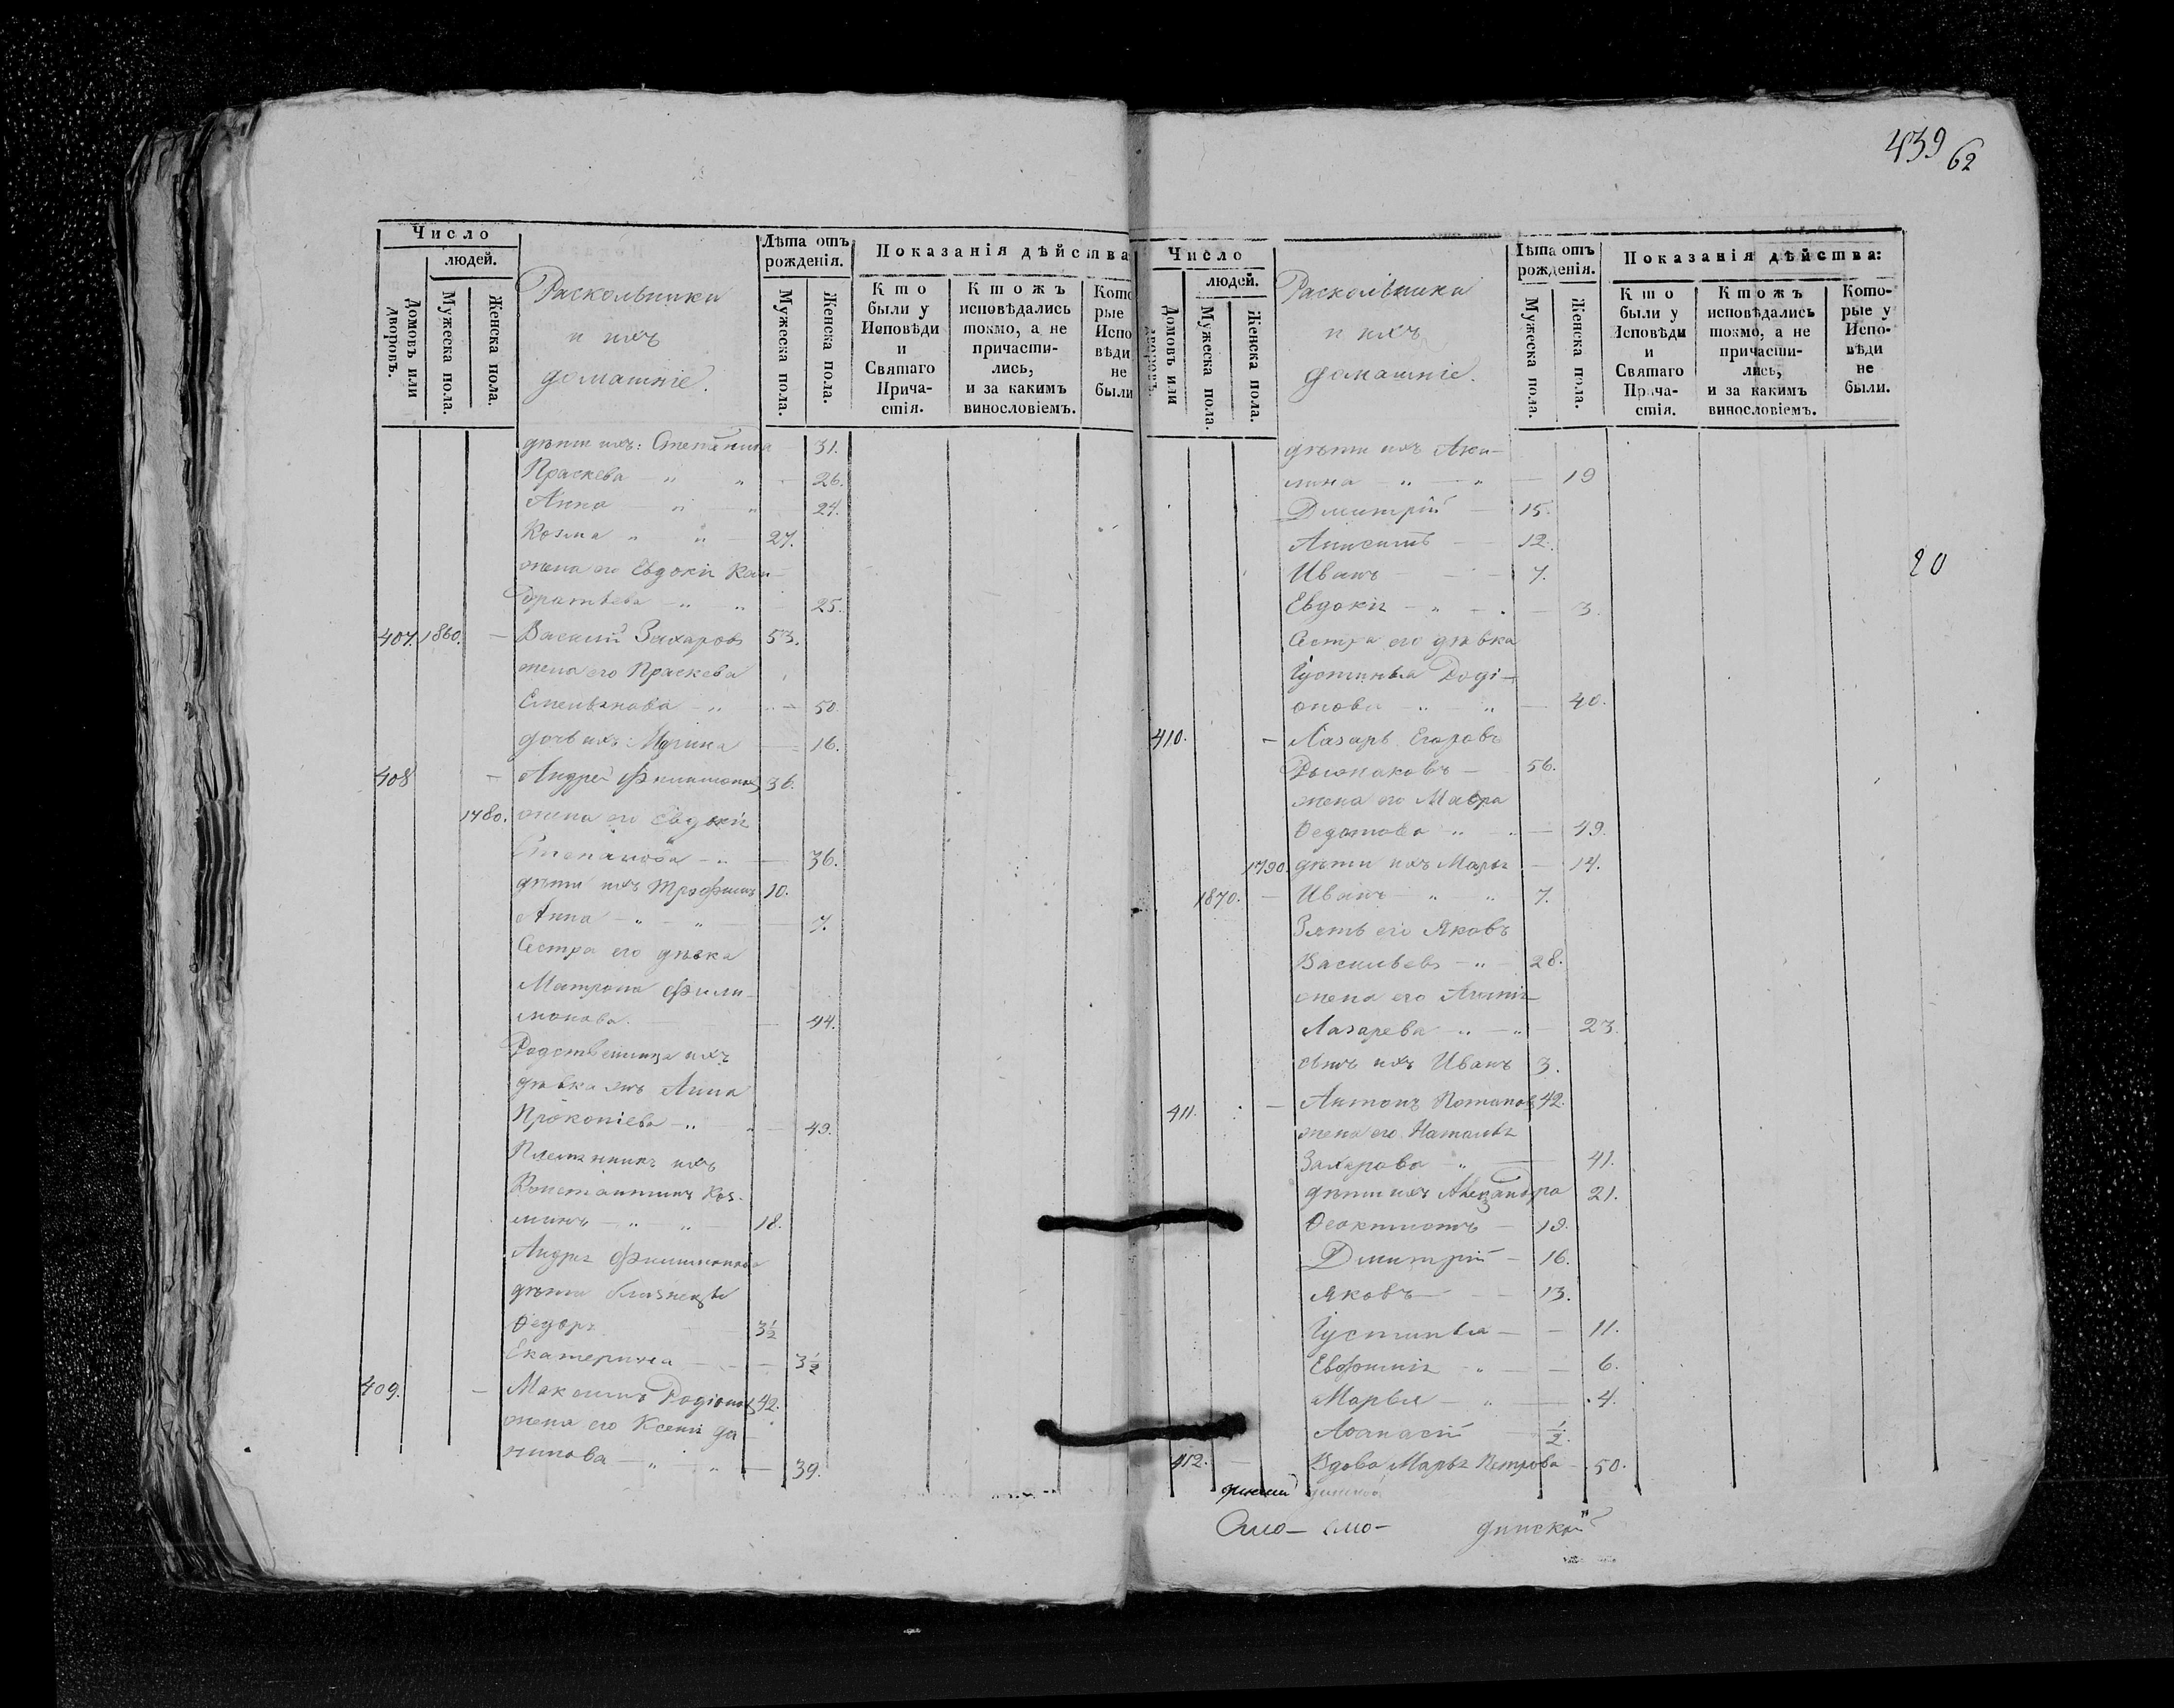 439 62
Число
людей.
Домовъ или дворовъ.
Мужеска пола.
Женска пола.
Раскольники
и ихъ
домашніе.
Лѣта отъ
рожденія.
Мужеска пола.
Женска пола.
Показанія дѣйства
Кто
были у
Исповѣди
и
Святаго
Прича-
стія.
Ктожъ
исповѣдались
токмо, а не
причасти-
лись,
и за какимъ
винословіемъ.
Кото
рые
Испо
вѣди
не
были
дѣти ихъ: Степанида — 31.
Праскева — " " — 26.
Анна — " " 24.
Козма " " — 27.
жена его Евдокія Кон-
дратьева — " — " — 25.
407. 1860. — Василій Захаровъ 53.
жена его Праскева
Емельянова — " — 50.
дочь ихъ Марина — 16.
408 — Андрей Филимоновъ 36.
1780. жена его Евдокія
Степанова — " — 36.
дѣти ихъ Трофимъ 10.
Анна — " — " — 7.
Сестра его дѣвка
Матрона Фили-
монова. — — 44.
Родственница ихъ
дѣвка Анна
Прокопіева — " — 49.
Племянникъ ихъ
Константинъ Коз-
минъ — " — " — 18.
Андрея Филимонова
дѣти близнецы
Ѳедоръ — 3½
Екатерина — — 3½
409. — Максимъ Родіоновъ 42.
жена его Ксенія Да-
нилова — " — " — 39.
Число
людей.
Домовъ или дворовъ.
Мужеска пола.
Женска пола.
Раскольники
и ихъ
домашніе.
Лѣта отъ
рожденія.
Мужеска пола.
Женска пола.
Показанія дѣйства:
Кто
были у
Исповѣди
и
Святаго
Прича-
стія.
Ктожъ
исповѣдались
токмо, а не
причасти-
лись,
и за какимъ
винословіемъ.
Кото-
рые у
Испо-
вѣди
не
были.
дѣти ихъ Аки-
лина — " — " — 19
Дмитрій — 15.
Анисимъ — 12.
20
Иванъ — 7.
Евдокія — " — 3.
Сестра его дѣвка
Іустинья Роді-
онова — " — " — 40.
410. — Лазарь Егоровъ
Рыжаковъ — 56.
жена его Мавра
Ѳедотова " — 49.
1790. дѣти ихъ Марья — 14.
1870. — Иванъ — " — " 7.
Зять его Яковъ
Васильевъ — " — 28.
жена его
Лазарева — " — " — 23.
сынъ ихъ Иванъ 3.
411. — Антонъ Потаповъ 42.
жена его Наталья
Захарова — " — 41.
дѣти ихъ Александра 21.
Ѳеоктистъ — 19.
Дмитрій — 16.
Яковъ — 13.
Іустинья — — 11.
Евфимія — " — 6.
Марья — " — 4.
Аѳанасій — ½.
412. — Вдова Марья Петрова — 50.